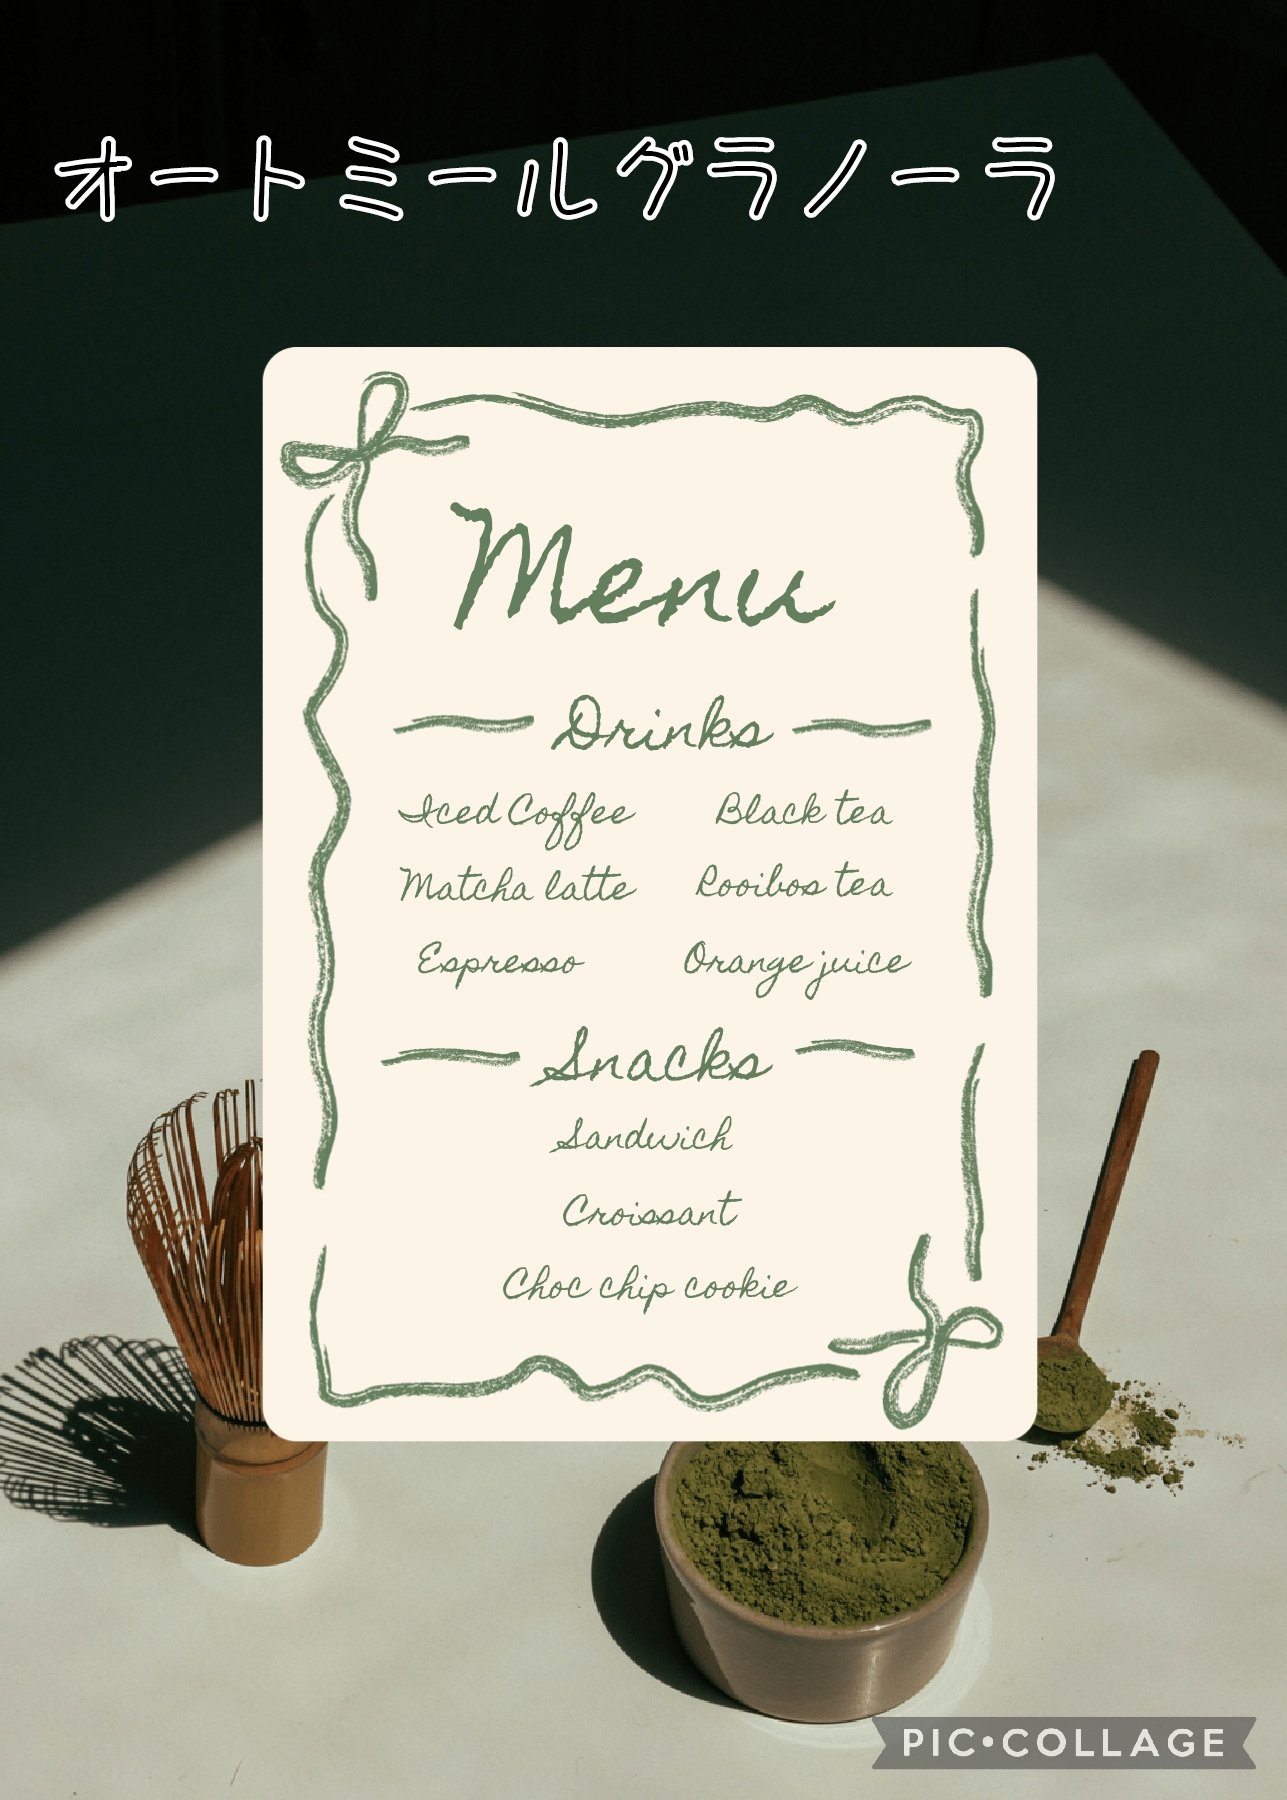 オートミールグラノーラ
Menu
Drinks
Iced Coffee Black tea
Matcha latte Rooibos tea
Espresso Orange juice
Snacks
Sandwich
Croissant
Choc chip cookie
PIC•COLLAGE